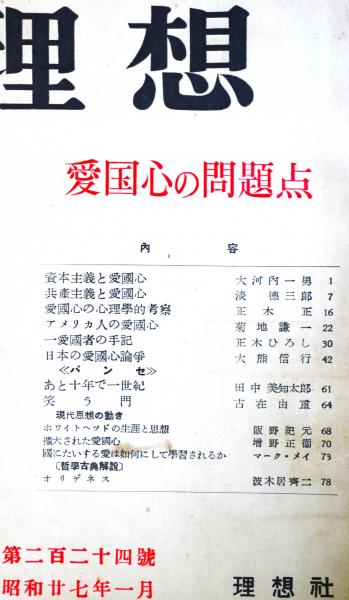 理想
愛国心の問題点
內容
資本主義と愛國心 大河內一男 1
共產主義と愛國心 淡徳三郎 7
愛國心の心理學的考察 正木正 16
アメリカ人の愛國心 菊地謙一 22
一愛國者の手記 正木ひろし 30
日本の愛國心論爭 大熊信行 42
≪パンセ≫
あと十年で一世紀 田中美知太郎 61
笑う門 古在由重 64
現代思想の動き
ホワイトヘッドの生涯と思想 飯野紀元 68
擴大された愛國心 増野正衞 70
國にたいする愛は如何にして學習されるか マーク・メイ 73
〔哲學古典解說〕
オリゲネス 波木居齊二 78
第二百二十四號
昭和廿七年一月 理想社